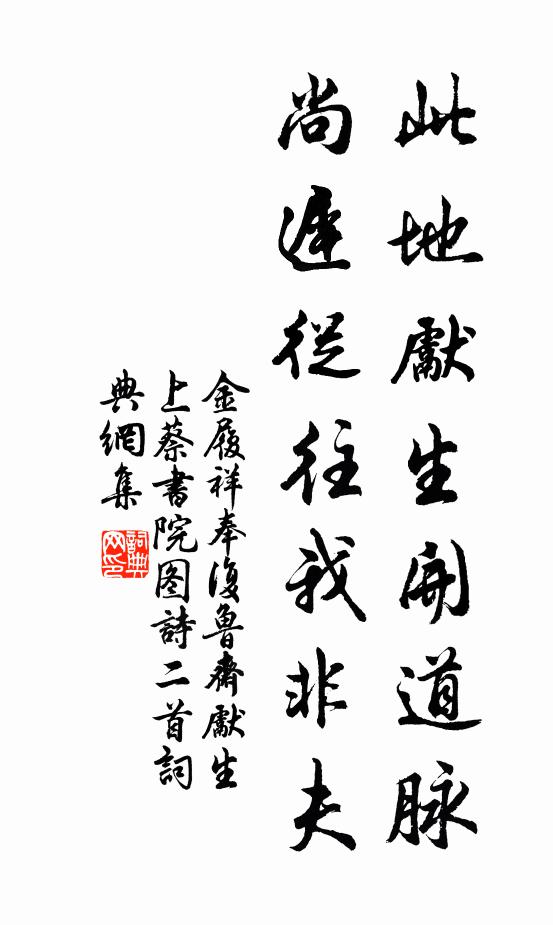 此地獻生開道脉
尚遲從往我非夫
金履祥奉復魯齋獻生
上蔡書院图詩二首詞
典網集
詞典
网印